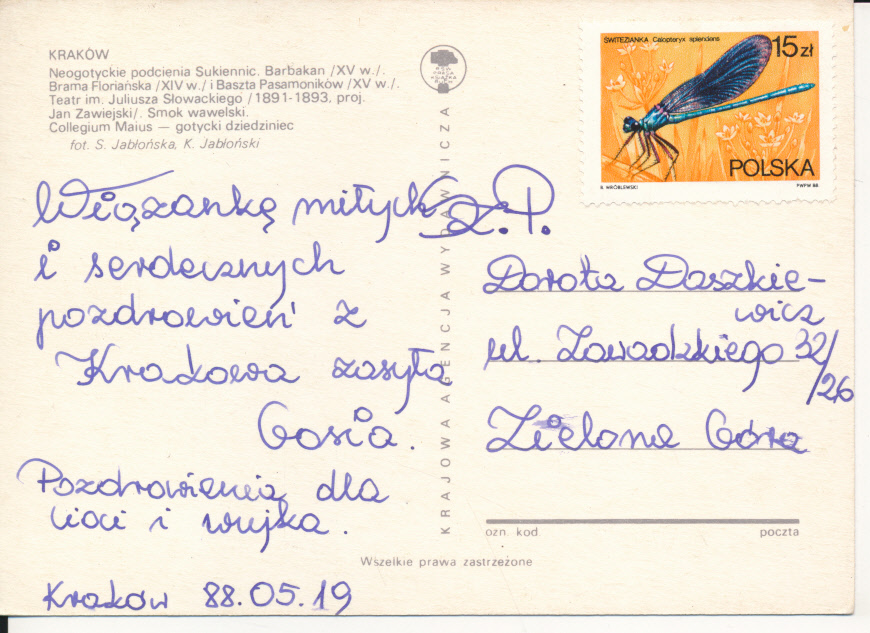 KRAKÓW
Neogotyckie podcienia Sukiennic. Barbakan /XV w./.
Brama Floriańska /XIV w./ i Baszta Pasamoników /XV w./.
Teatr im. Juliusza Słowackiego /1891-1893, proj.
Jan Zawiejski/. Smok wawelski.
Collegium Maius — gotycki dziedziniec
fot. S. Jabłońska, K. Jabłoński
Wiązankę miłych
i serdecznych
pozdrowień z
Krakowa zasyła
Gosia.
Pozdrowienia dla
cioci i wujka.
Kraków 88.05.19
KRAJOWA AGENCJA WYDAWNICZA
ŚWITEZIANKA Calopteryx splendens
15 zł
POLSKA
S. WRÓBLEWSKI
PWPW 88
Sz.P.
Dorota Daszkie-
wicz
ul. Zawadzkiego 32/
/26
Zielona Góra
ozn. kod
poczta
Wszelkie prawa zastrzeżone